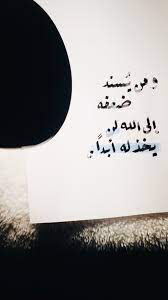 ومن يُسند
ضعفه
إلى الله لن
يخذله أبداً.